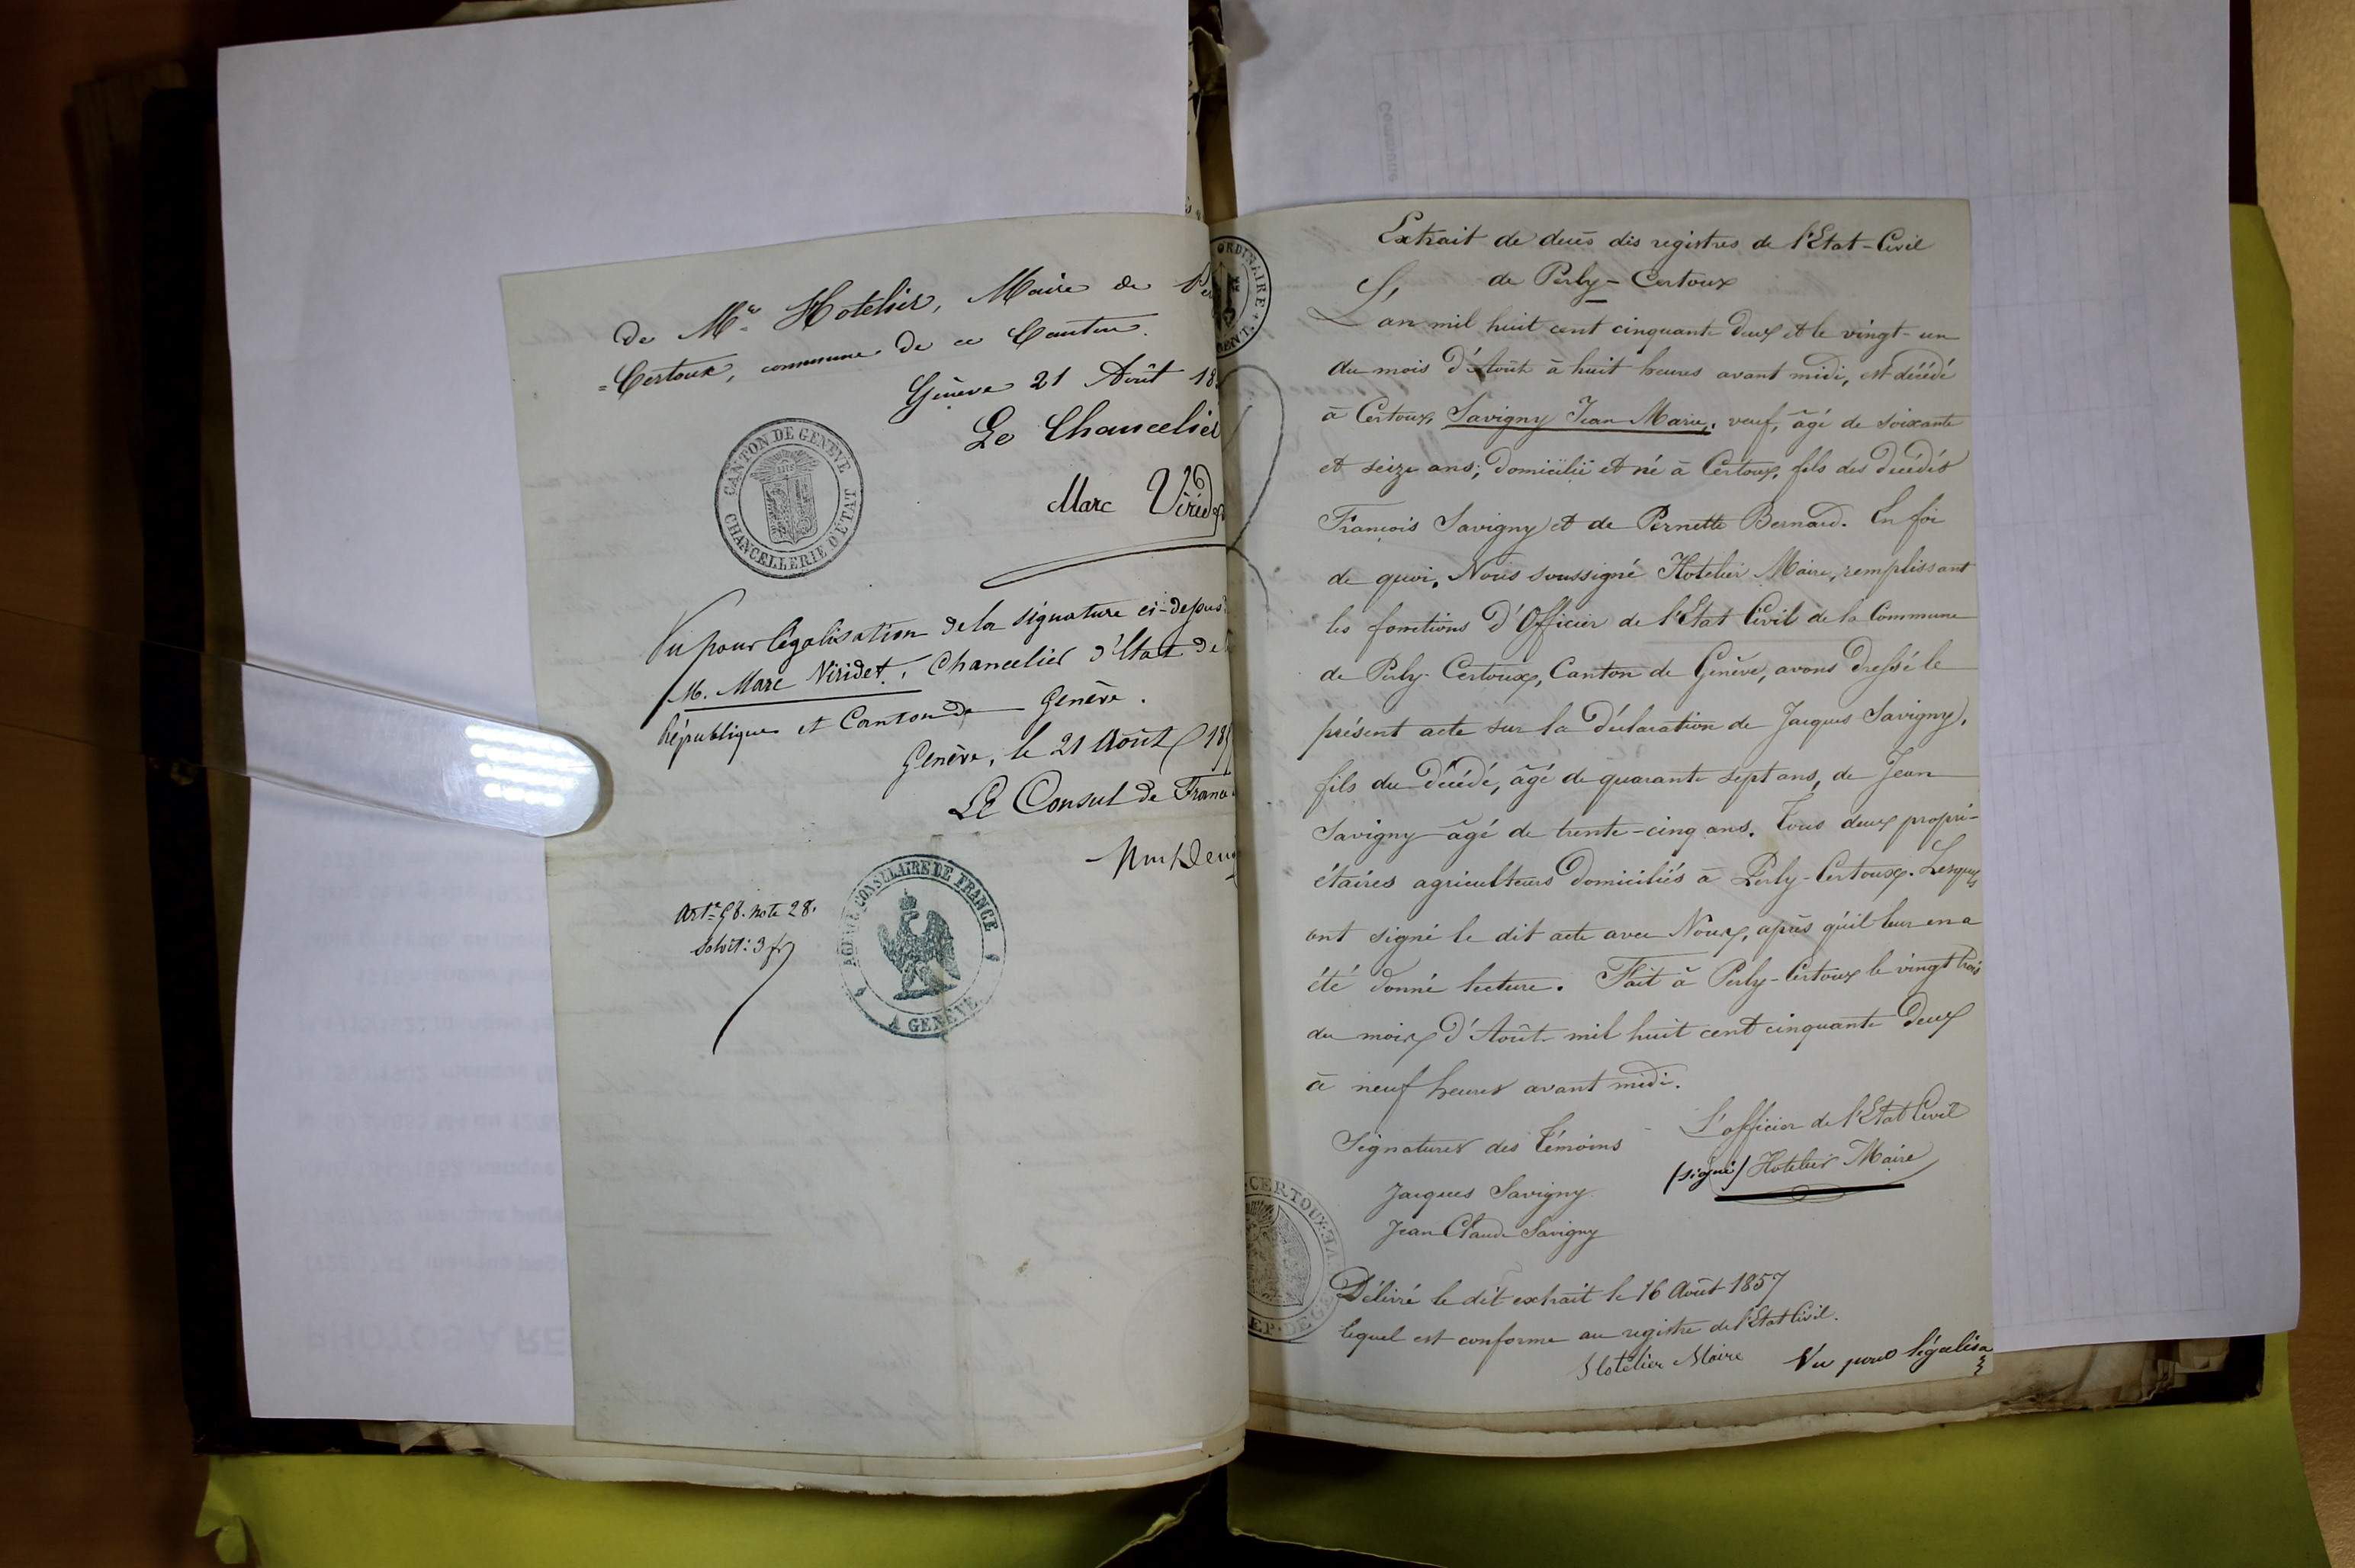 de Mr. Hotelier, Maire de Per
=Certoux, commune de ce Canton.
Genève 21 Août 18
Le Chancelier
Marc Virid
CANTON DE GENÈVE
CHANCELLERIE D'ÉTAT
Vu pour légalisation de la signature ci-dessus
M. Marc Viridet, Chancelier d'Etat de
République et Canton de Genève.
Genève, le 21 Août 185
Le Consul de France
Art. 58. note 28.
Solvit: 3 fr
CONSULAIRE DE FRANCE
A GENÈVE
ORDINAIRE
Commune
Extrait de decès des registres de l'Etat-Civil
de Perly-Certoux
L'an mil huit cent cinquante deux et le vingt-un
du mois d'Août à huit heures avant midi, est décédé
à Certoux, Savigny Jean Marie, veuf, âgé de soixante
et seize ans; domicilié et né à Certoux, fils des décédés
François Savigny et de Pernette Bernard. En foi
de quoi, Nous soussigné Hotelier Maire, remplissant
les fonctions d'Officier de l'Etat Civil de la Commune
de Perly-Certoux, Canton de Genève, avons dressé le
présent acte sur la déclaration de Jacques Savigny,
fils du décédé, âgé de quarante sept ans, de Jean
Savigny âgé de trente-cinq ans. Tous deux propri-
étaires agriculteurs domiciliés à Perly-Certoux. Lesquels
ont signé le dit acte avec Nous, après qu'il leur en a
été donné lecture. Fait à Perly-Certoux le vingt trois
du mois d'Août mil huit cent cinquante deux
à neuf heures avant midi.
Signatures des Témoins
L'officier de l'Etat Civil
(signé) Hotelier Maire
Jacques Savigny
Jean Claude Savigny
CERTOUX
Délivré le dit extrait le 16 Août 1857
lequel est conforme au registre de l'Etat Civil.
Hotelier Maire Vu pour légalisa
PHOTOS A RE